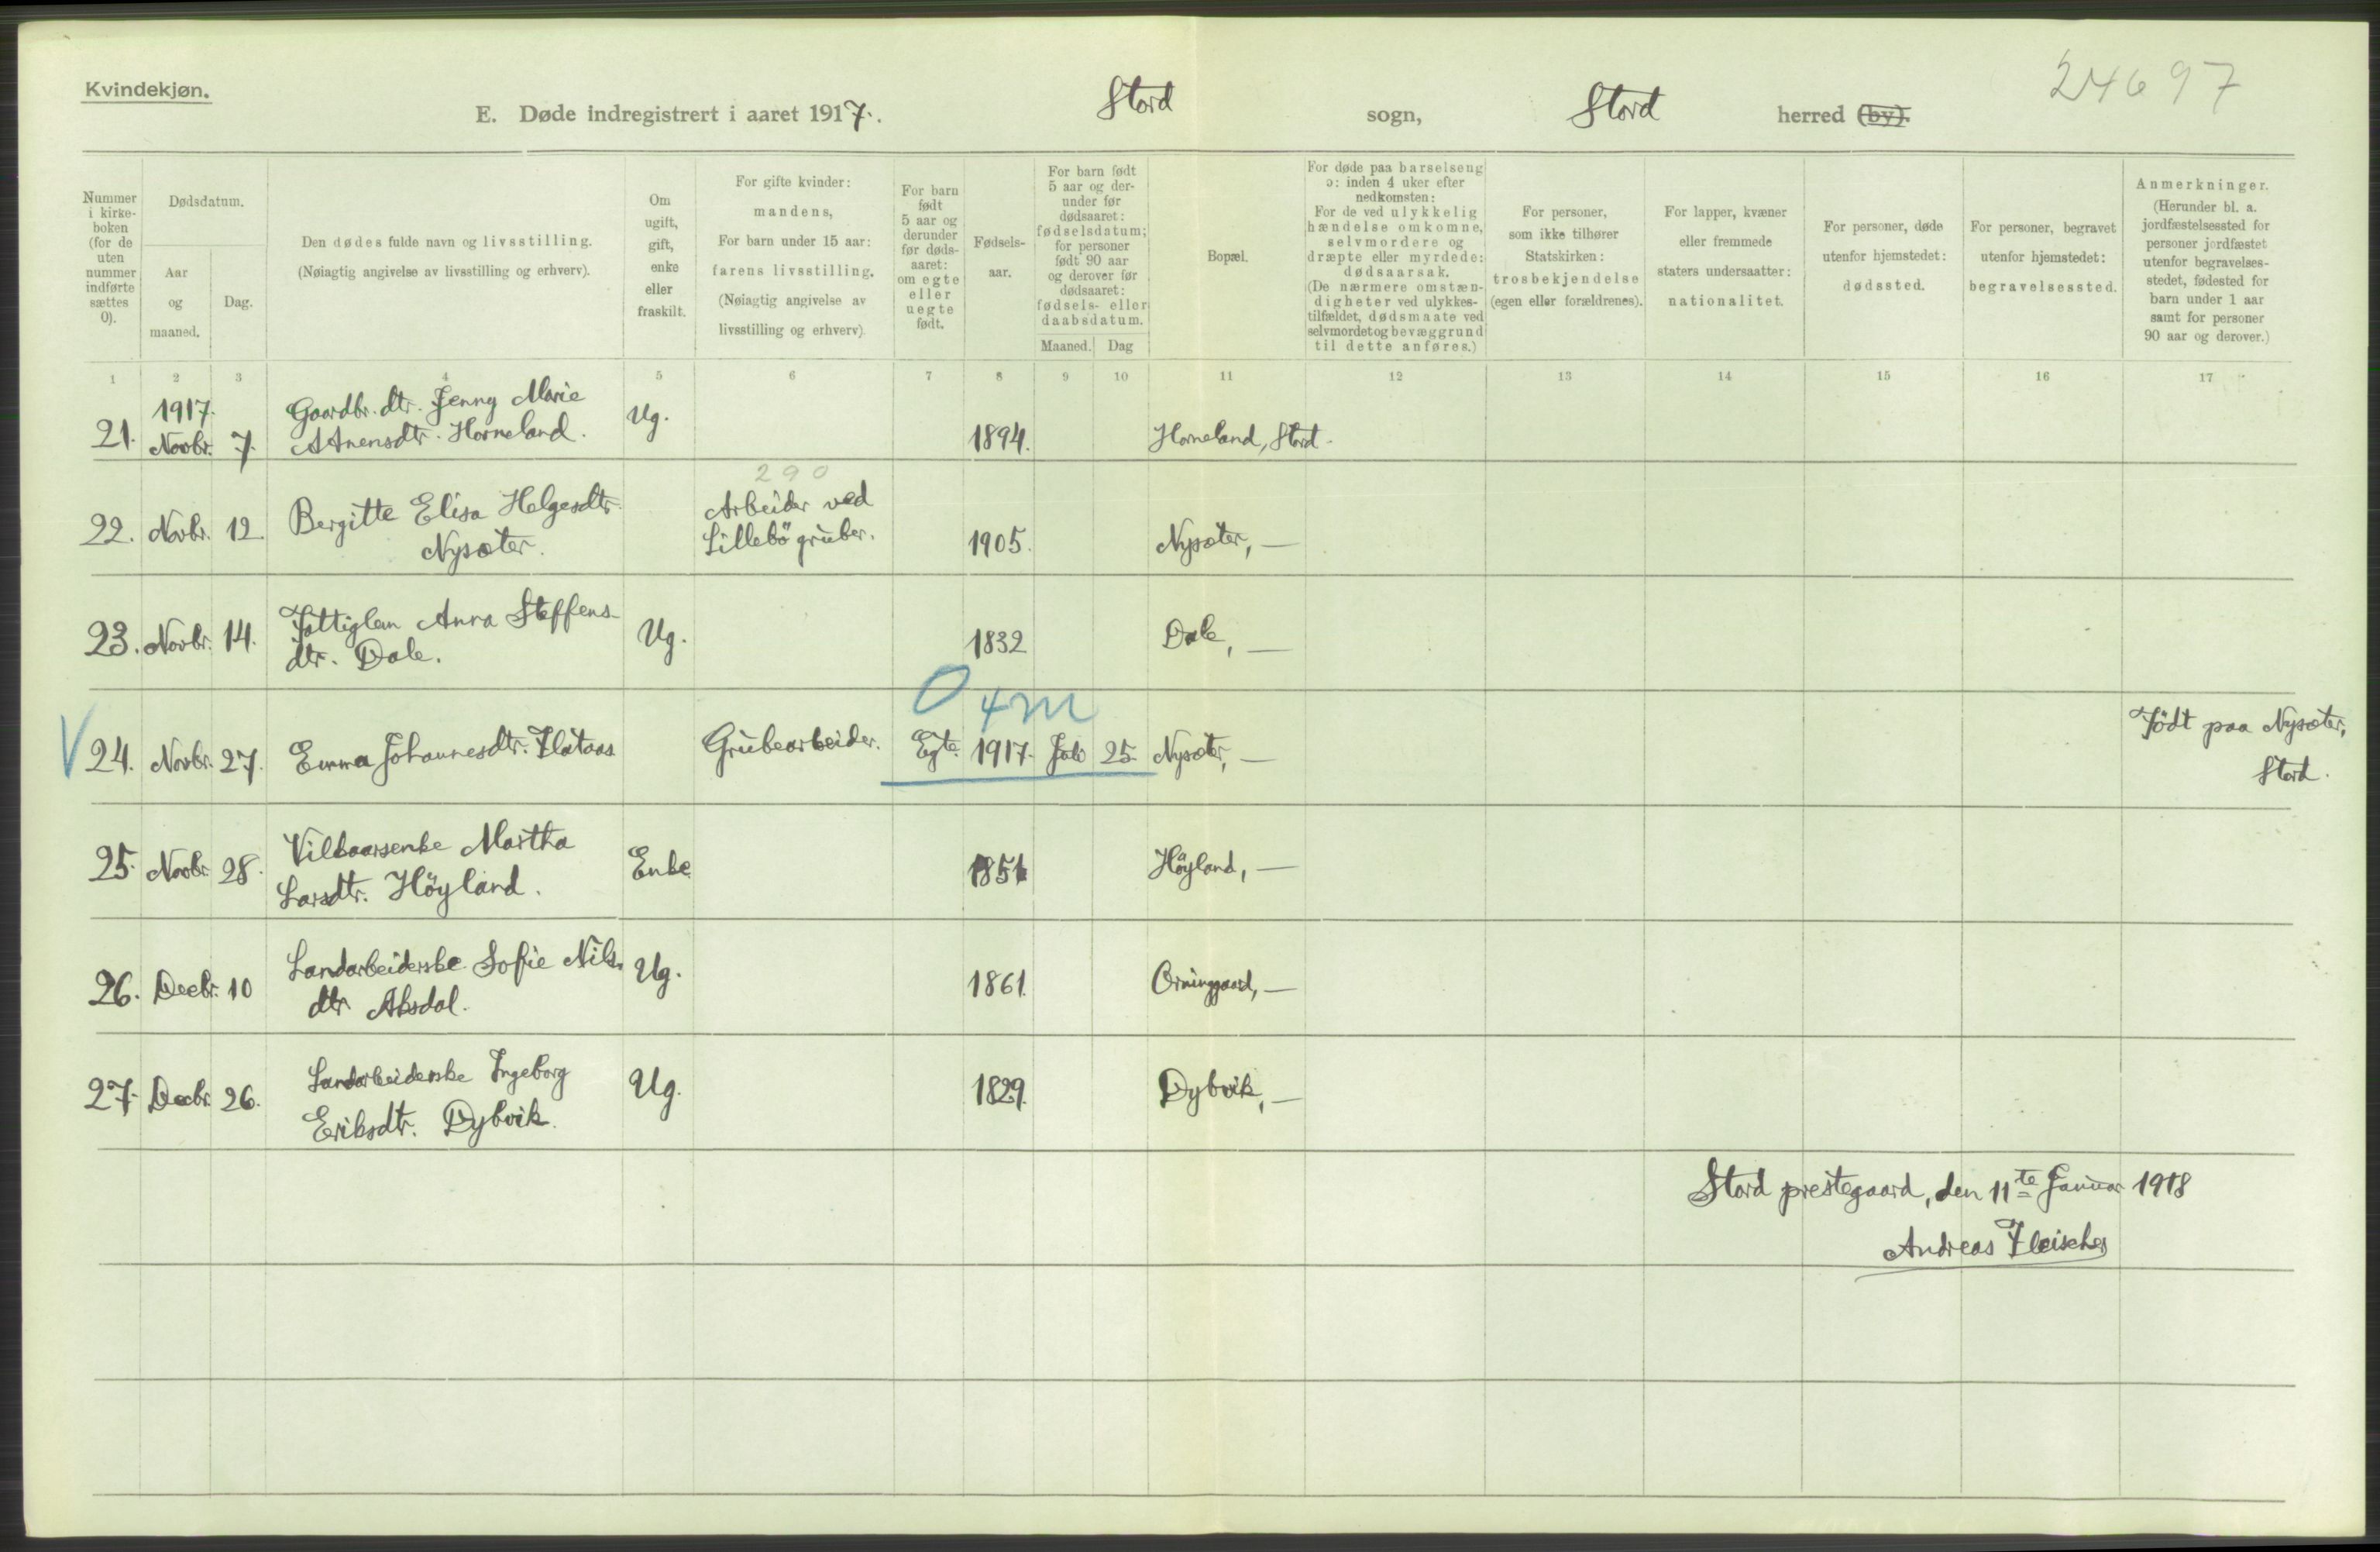 Kvindekjøn.
24697
E. Døde indregistrert i aaret 1917. Stord sogn, Stord herred (by).
Nummer i kirke-boken (for de uten nummer indførte sættes 0).
Dødsdatum.
Aar og maaned.
Dag.
Den dødes fulde navn og livsstilling.
(Nøiagtig angivelse av livsstilling og erhverv).
Om ugift, gift, enke eller fraskilt.
For gifte kvinder: mandens,
For barn under 15 aar: farens livsstilling.
(Nøiagtig angivelse av livsstilling og erhverv).
For barn født 5 aar og derunder før døds-aaret: om egte eller uegte født.
Fødsels-aar.
For barn født 5 aar og der-under før dødsaaret: fødselsdatum; for personer født 90 aar og derover før dødsaaret: fødsels- eller daabsdatum.
Maaned. Dag
Bopæl.
For døde paa barselseng ɔ: inden 4 uker efter nedkomsten:
For de ved ulykkelig hændelse omkomne, selvmordere og dræpte eller myrdede: dødsaarsak.
(De nærmere omstæn-digheter ved ulykkes-tilfældet, dødsmaate ved selvmordet og bevæggrund til dette anføres.)
For personer, som ikke tilhører Statskirken: trosbekjendelse (egen eller forældrenes).
For lapper, kvæner eller fremmede staters undersaatter: nationalitet.
For personer, døde utenfor hjemstedet: dødssted.
For personer, begravet utenfor hjemstedet: begravelsessted.
Anmerkninger.
(Herunder bl. a. jordfæstelsessted for personer jordfæstet utenfor begravelses-stedet, fødested for barn under 1 aar samt for personer 90 aar og derover.)
1 2 3 4 5 6 7 8 9 10 11 12 13 14 15 16 17
1917.
21. Novbr. 7. Gaardbr. dtr. Jenny Marie
Horneland. Ug. 1894. Horneland, Stord.
290
22. Novbr. 12. Bergitte Elisa Helgesdtr.
Nysæter. Arbeider ved
Lillebö gruber. 1905. Nysæter, —
23. Novbr. 14. Fattiglem Anna Steffens-
dtr. Dale. Ug. 1832 Dale, —
0 4 m
V 24. Novbr. 27. Emma Johannesdtr. Flataas Grubearbeider. Egte. 1917. Juli 25. Nysæter, — Födt paa Nysæter,
Stord.
25. Novbr. 28. Vilkaarsenke Martha
Larsdtr. Höyland. Enke 1851 Höyland, —
26. Decbr. 10 Landarbeiderske Sofie Nils-
dtr Aksdal. Ug. 1861. Orninggaard, —
27. Decbr. 26. Landarbeiderske Ingeborg
Eriksdtr. Dybvik. Ug. 1829. Dybvik, —
Stord prestegaard, den 11te Januar 1918
Andreas Fleischer